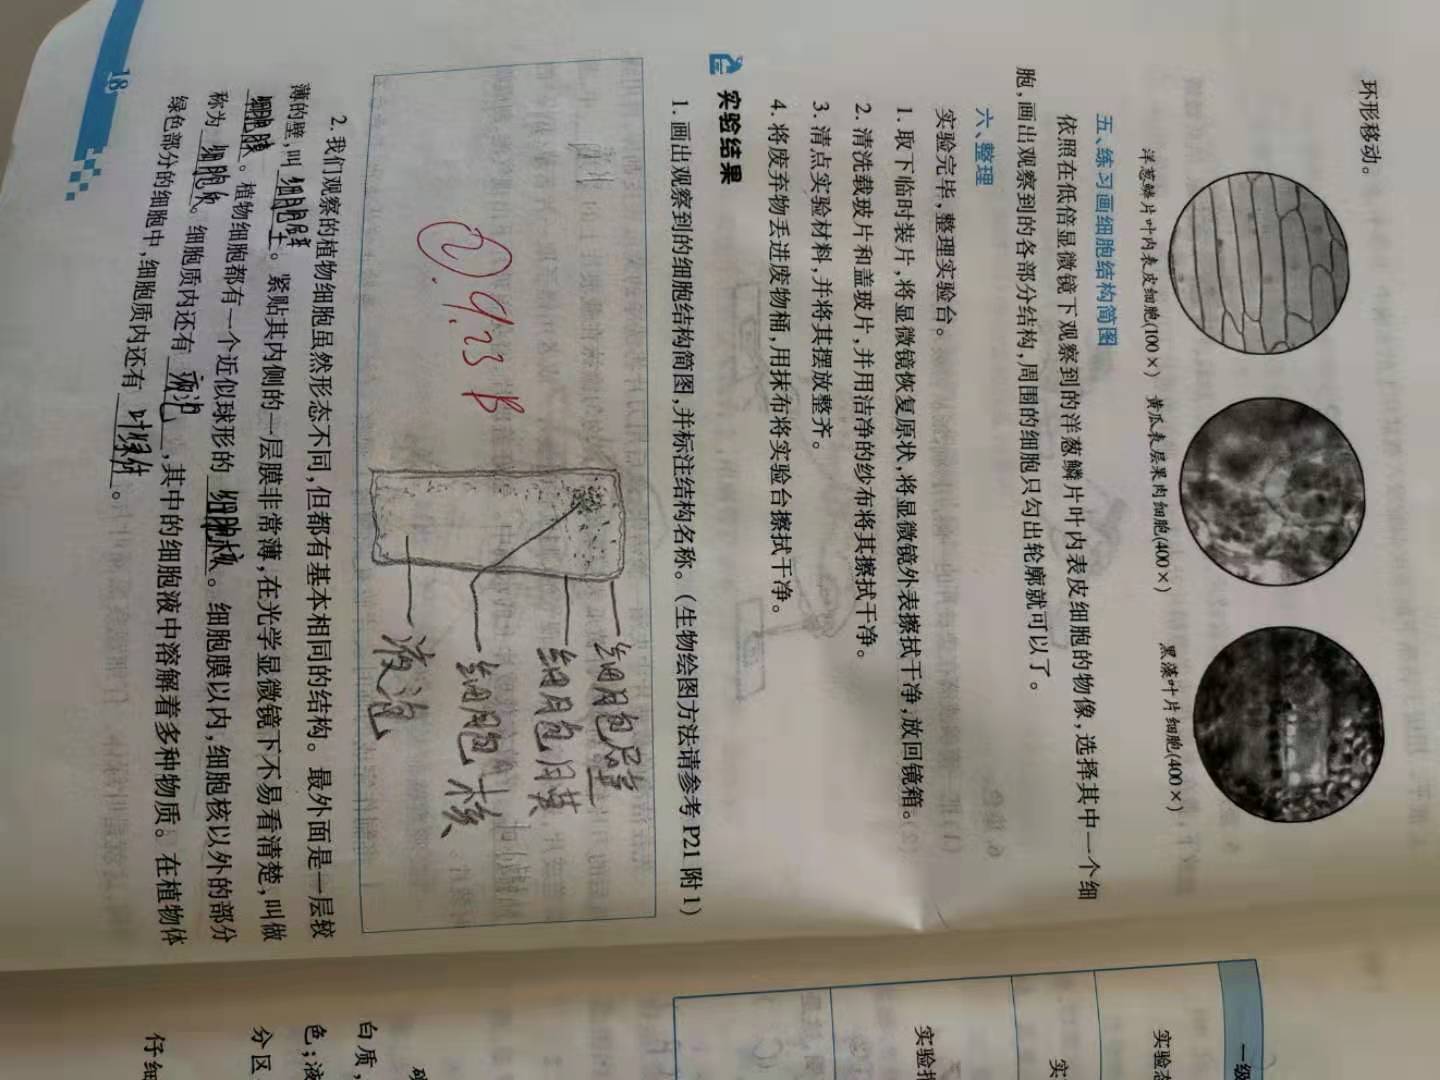 环形移动。
洋葱鳞片叶内表皮细胞(100×) 黄瓜表层果肉细胞(400×) 黑藻叶片细胞(400×)
五、练习画细胞结构简图
依照在低倍显微镜下观察到的洋葱鳞片叶内表皮细胞的物像,选择其中一个细
胞,画出观察到的各部分结构,周围的细胞只勾出轮廓就可以了。
六、整理
实验完毕,整理实验台。
1. 取下临时装片,将显微镜恢复原状,将显微镜外表擦拭干净,放回镜箱。
2. 清洗载玻片和盖玻片,并用洁净的纱布将其擦拭干净。
3. 清点实验材料,并将其摆放整齐。
4. 将废弃物丢进废物桶,用抹布将实验台擦拭干净。
实验结果
1. 画出观察到的细胞结构简图,并标注结构名称。(生物绘图方法请参考 P21 附 1)
细胞壁
细胞膜
细胞核
液泡
2. 9.23 B
2. 我们观察的植物细胞虽然形态不同,但都有基本相同的结构。最外面是一层较
薄的壁,叫 细胞壁 。紧贴其内侧的一层膜非常薄,在光学显微镜下不易看清楚,叫做
细胞膜 。植物细胞都有一个近似球形的 细胞核 。细胞膜以内,细胞核以外的部分
称为 细胞质 。细胞质内还有 液泡 ,其中的细胞液中溶解着多种物质。在植物体
绿色部分的细胞中,细胞质内还有 叶绿体 。
18
一级
实验态
实
实验报
白质,
色;液
分区
仔细